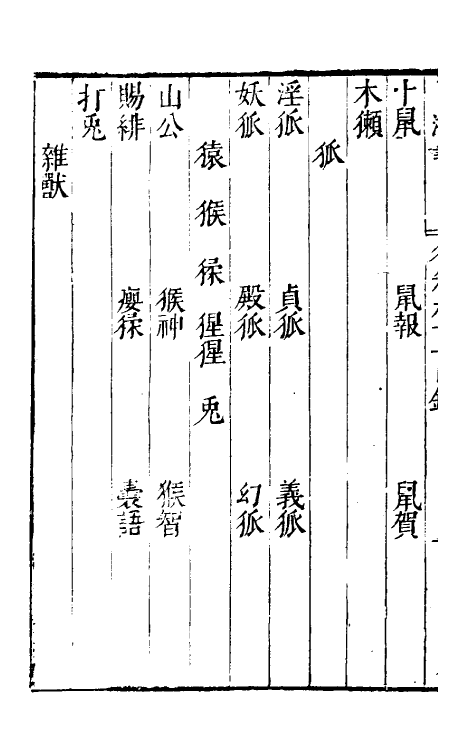 十鼠 鼠報 鼠賀
木獺
狐
淫狐 貞狐 義狐
妖狐 殿狐 幻狐
猿猴猱猩猩兎
山公 猴神 猴智
賜緋 瘿猱 囊語
打兎
雜獸